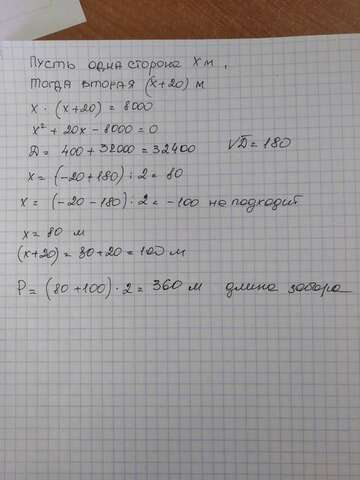 Пусть одна сторона x м,
Тогда вторая (x+20) м
x · (x+20) = 8000
x² + 20x - 8000 = 0
D = 400 + 32000 = 32400 √D = 180
x = (-20+180) : 2 = 80
x = (-20-180) : 2 = -100 не подходит
x = 80 м
(x+20) = 80+20 = 100 м
P = (80+100) · 2 = 360 м длина забора